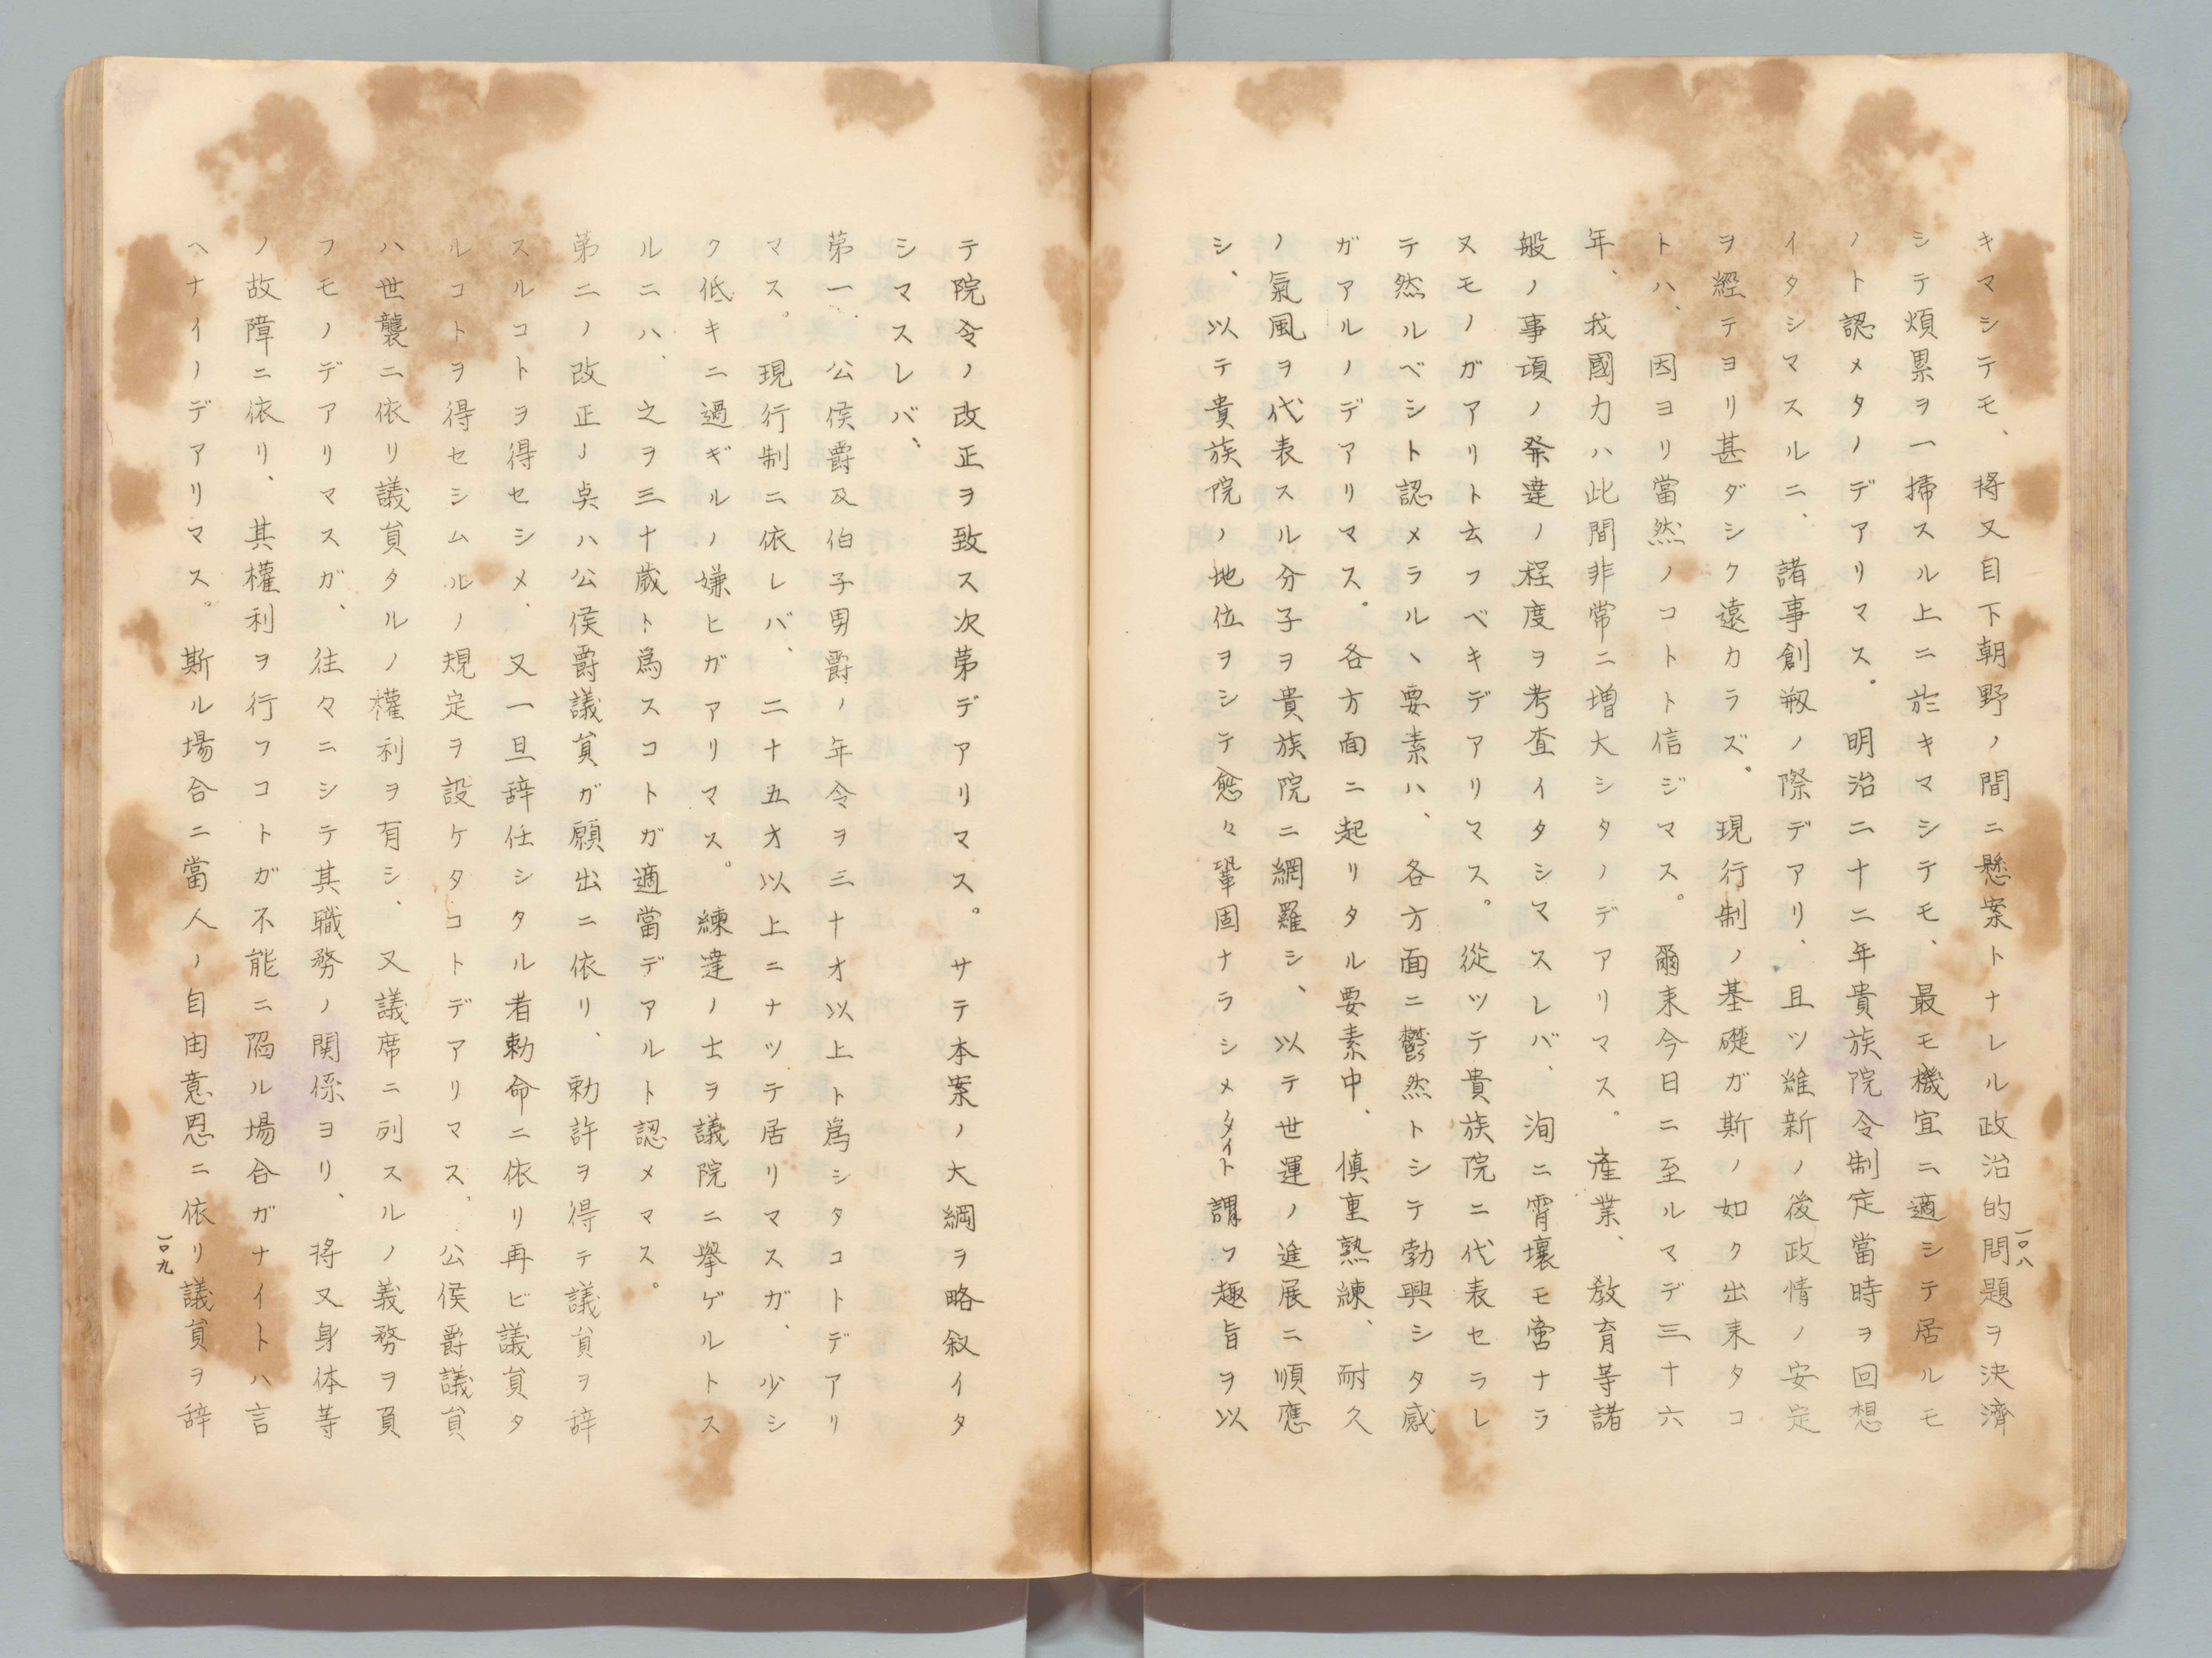 キマシテモ、将又目下朝野ノ間ニ懸案トナレル政治的問題ヲ決濟
シテ煩累ヲ一掃スル上ニ於キマシテモ、最モ機宜ニ適シテ居ルモ
ノト認メタノデアリマス。明治二十二年貴族院令制定當時ヲ回想
イタシマスルニ、諸事創剏ノ際デアリ、且ツ維新ノ後政情ノ安定
ヲ經テヨリ甚ダシク遠カラズ。現行制ノ基礎ガ斯ノ如ク出来タコ
トハ、因ヨリ當然ノコトト信ジマス。爾来今日ニ至ルマデ三十六
年、我國力ハ此間非常ニ増大シタノデアリマス。産業、敎育等諸
般ノ事項ノ発達ノ程度ヲ考査イタシマスレバ、洵ニ霄壤モ啻ナラ
ヌモノガアリト云フベキデアリマス。從ツテ貴族院ニ代表セラレ
テ然ルベシト認メラルヽ要素ハ、各方面ニ鬱然トシテ勃興シタ感
ガアルノデアリマス。各方面ニ起リタル要素中、愼重熟練、耐久
ノ氣風ヲ代表スル分子ヲ貴族院ニ網羅シ、以テ世運ノ進展ニ順應
シ、以テ貴族院ノ地位ヲシテ愈々鞏固ナラシメタイト謂フ趣旨ヲ以
一〇八
テ院令ノ改正ヲ致ス次第デアリマス。サテ本案ノ大綱ヲ略叙イタ
シマスレバ、
第一、公侯爵及伯子男爵ノ年令ヲ三十才以上ト為シタコトデアリ
マス。現行制ニ依レバ、二十五才以上ニナツテ居リマスガ、少シ
ク低キニ過ギルノ嫌ヒガアリマス。練達ノ士ヲ議院ニ擧ゲルトス
ルニハ、之ヲ三十歳ト為スコトガ適當デアルト認メマス。
第二ノ改正ノ点ハ公侯爵議員ガ願出ニ依リ、勅許ヲ得テ議員ヲ辞
スルコトヲ得セシメ、又一旦辞任シタル者勅命ニ依リ再ビ議員タ
ルコトヲ得セシムルノ規定ヲ設ケタコトデアリマス、公侯爵議員
ハ世襲ニ依リ議員タルノ權利ヲ有シ、又議席ニ列スルノ義務ヲ負
フモノデアリマスガ、往々ニシテ其職務ノ関係ヨリ、将又身体等
ノ故障ニ依リ、其權利ヲ行フコトガ不能ニ陷ル場合ガナイトハ言
ヘナイノデアリマス。斯ル場合ニ當人ノ自由意思ニ依リ議員ヲ辞
一〇九